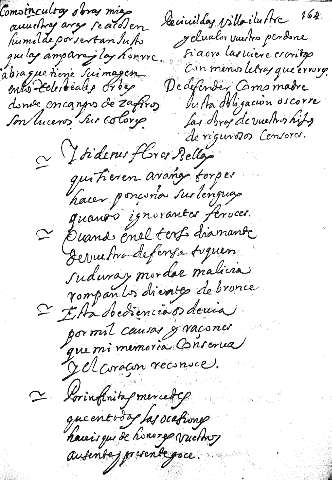 164
Como incultas obras mias
a vuestras aras se atosen
humilde por ser tan justo
que las ampare y las honrre
abra que tiene su imagen
en los celestiales orbes
donde en campos de zafiros
son luceros sus colores
Recivildas villa ilustre
y el valor vuestro perdone
si acaso las viere escritas
con menos letras que errores
Defender como madre
justa obligacion os corre
las obras de vuestros hijos
de rigurosos censores.
Y si de sus flores bellas
quisieren arañas torpes
hacer ponçoña sus lenguas
quando ignorantes feroces.
Quando en el terso diamante
de vuestra defensa toquen
su dura y mordaz malicia
rompan los dientes de bronce
Esta obediencia os devia
por mil causas y raçones
que mi memoria conserva
y el coraçon reconoce.
Por infinitas mercedes
que en todas las ocasiones
haveis que de honores vuestros
ausente y presente goce.